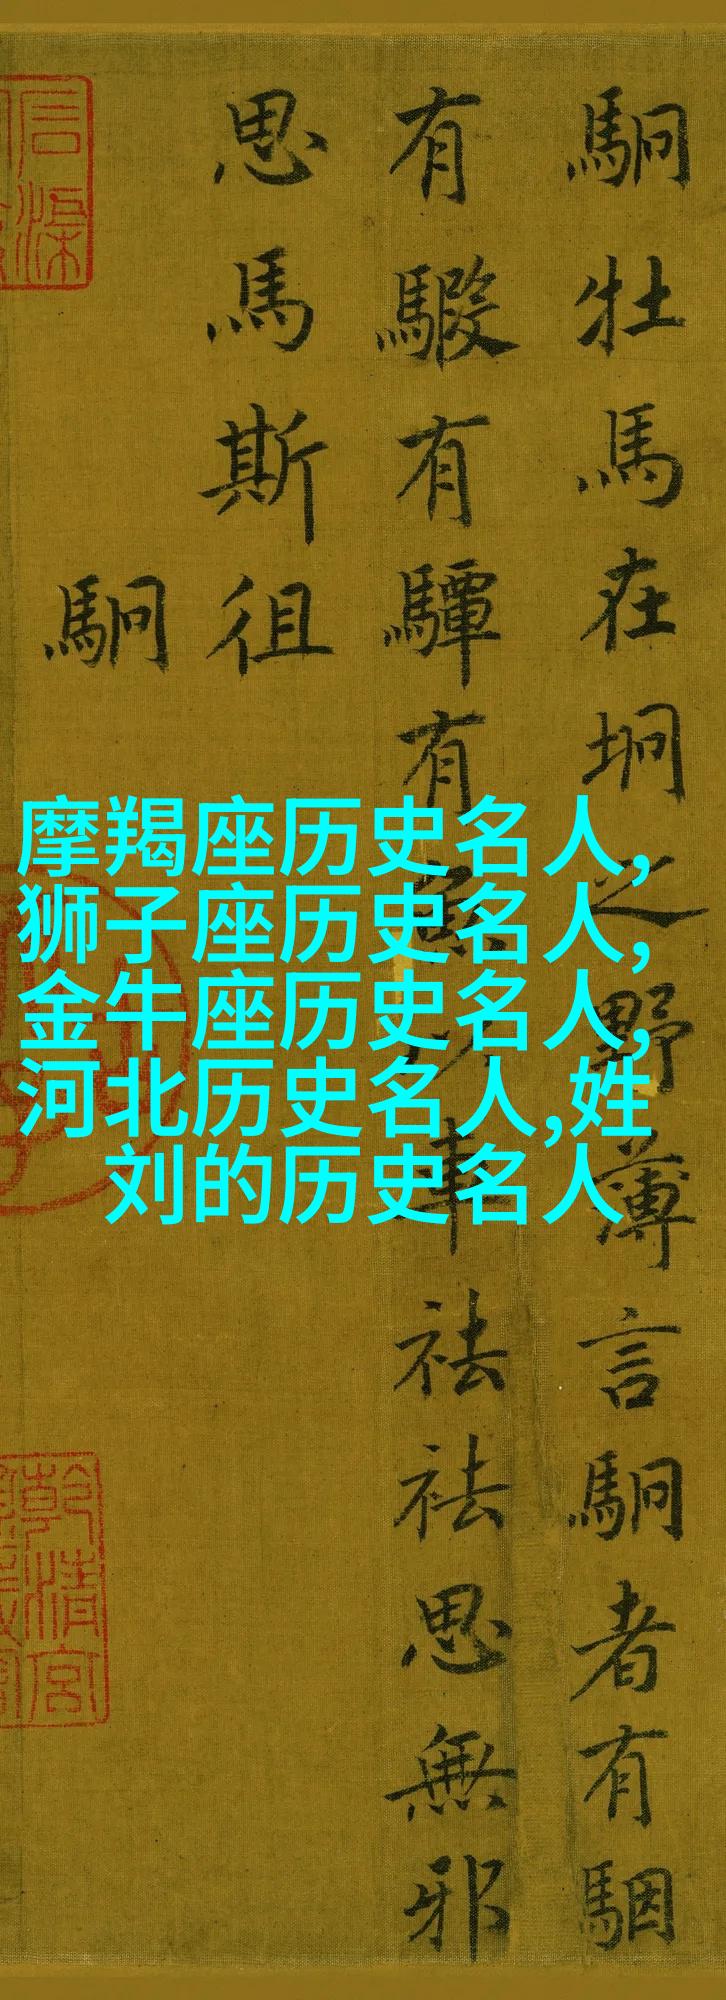 駉牡馬在坰之野薄言駉者有駰
有騢有驔有魚以車祛祛思無邪
思馬斯徂
駉
摩羯座历史名人,
狮子座历史名人,
金牛座历史名人,
河北历史名人,姓
刘的历史名人
乾清宮